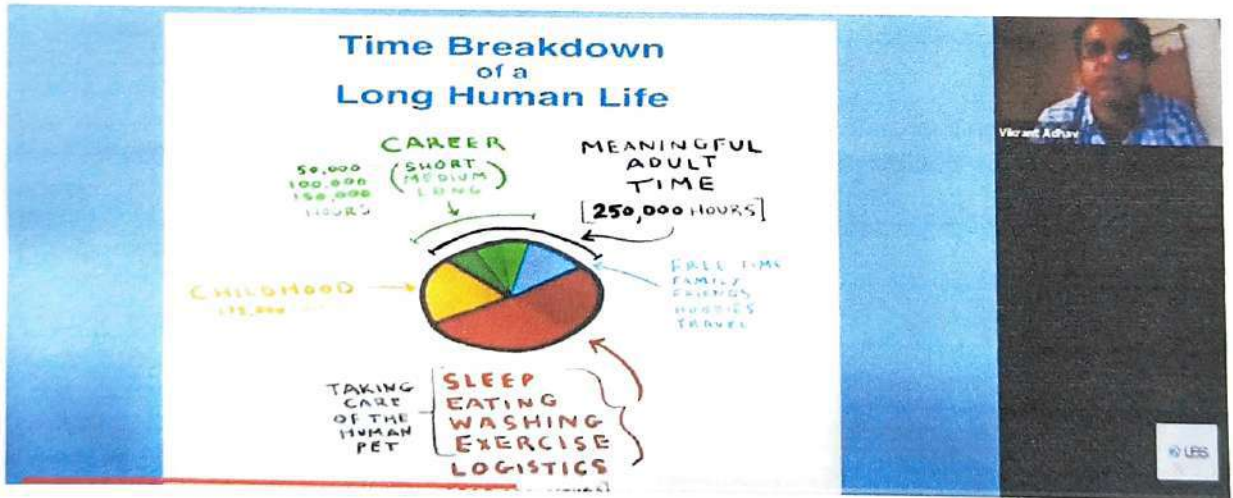 Time Breakdown
of a
Long Human Life
CAREER
50,000
100,000
150,000
HOURS
(SHORT
MEDIUM
LONG)
MEANINGFUL
ADULT
TIME
[250,000 HOURS]
CHILDHOOD
FREE TIME
FAMILY
FRIENDS
HOBBIES
TRAVEL
TAKING
CARE
OF THE
HUMAN
PET
SLEEP
EATING
WASHING
EXERCISE
LOGISTICS
Vikrant Adhav